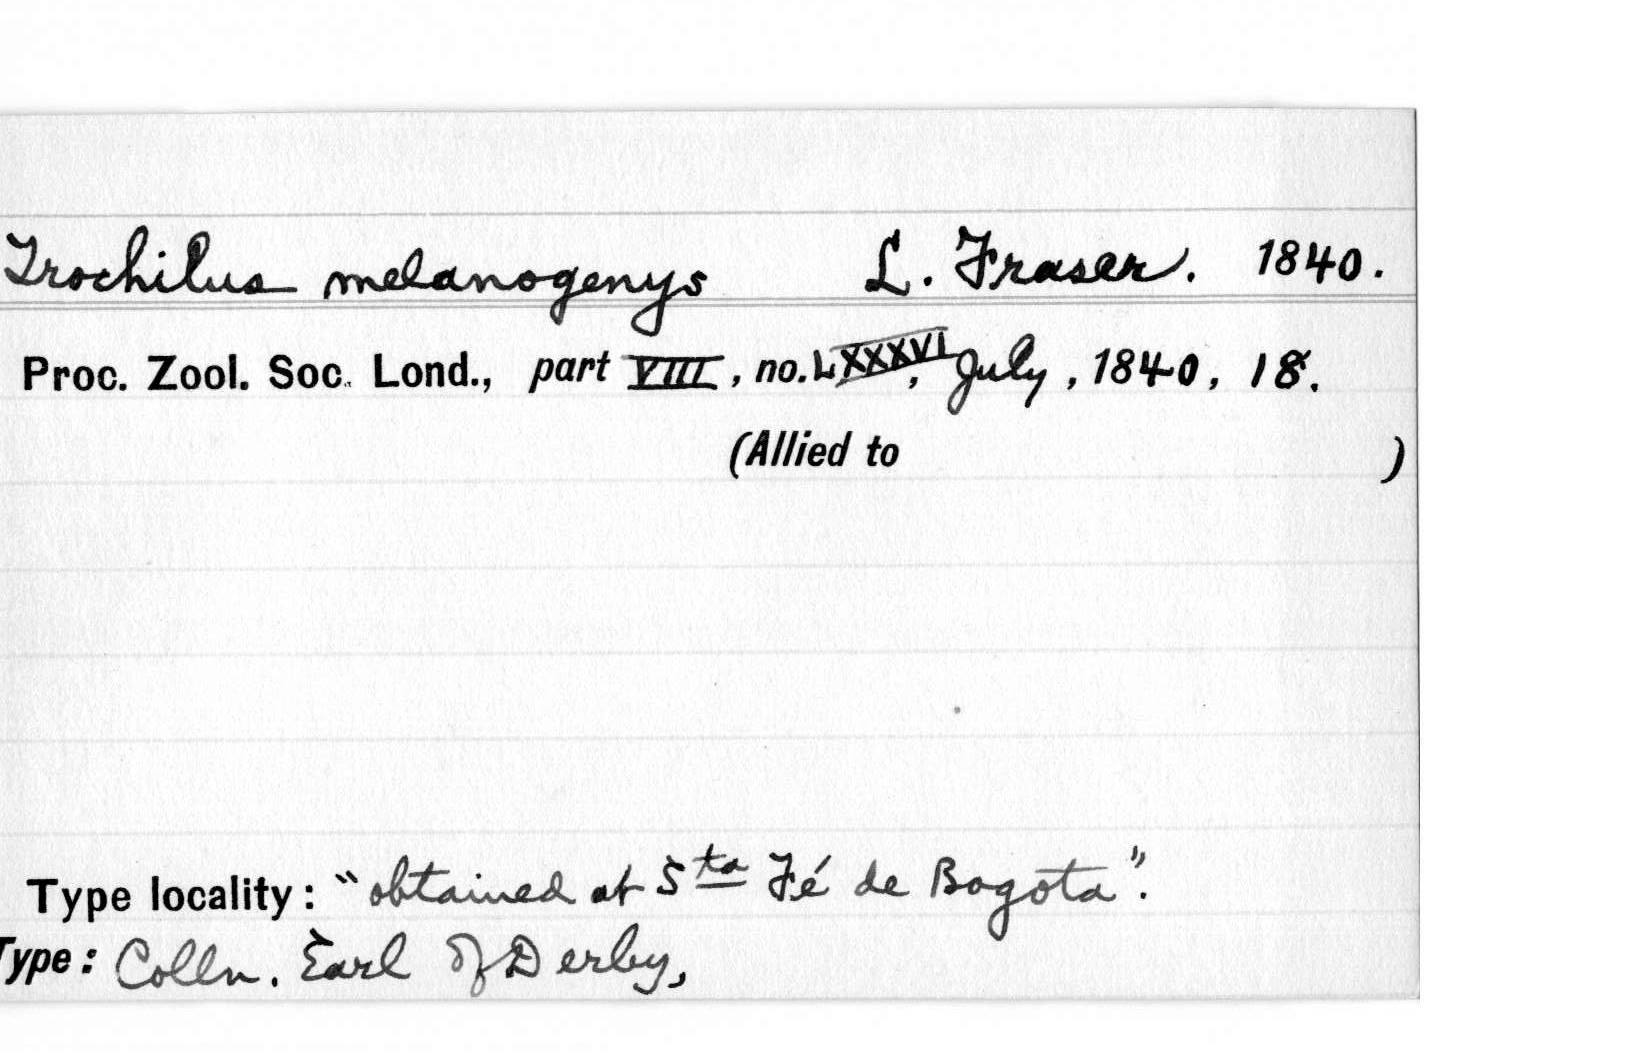 Trochilus melanogenys L. Fraser. 1840.
Proc. Zool. Soc. Lond., part VIII, no. LXXXVI, July, 1840, 18.
(Allied to )
Type locality: "obtained at Sta Fé de Bogota".
Type: Colln. Earl of Derby,